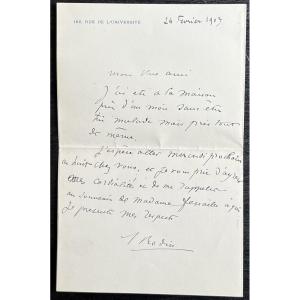 182 RUE DE L'UNIVERSITÉ
24 Février 1907
Mon cher ami
J'ai été à la maison
près d'un mois sans être
très malade mais près tout
de même.
J'espère aller mercredi prochain
chez vous, et je vous prie
cordialité et de me rappeler
au souvenir de madame à qui
je présente mes respects
A Rodin